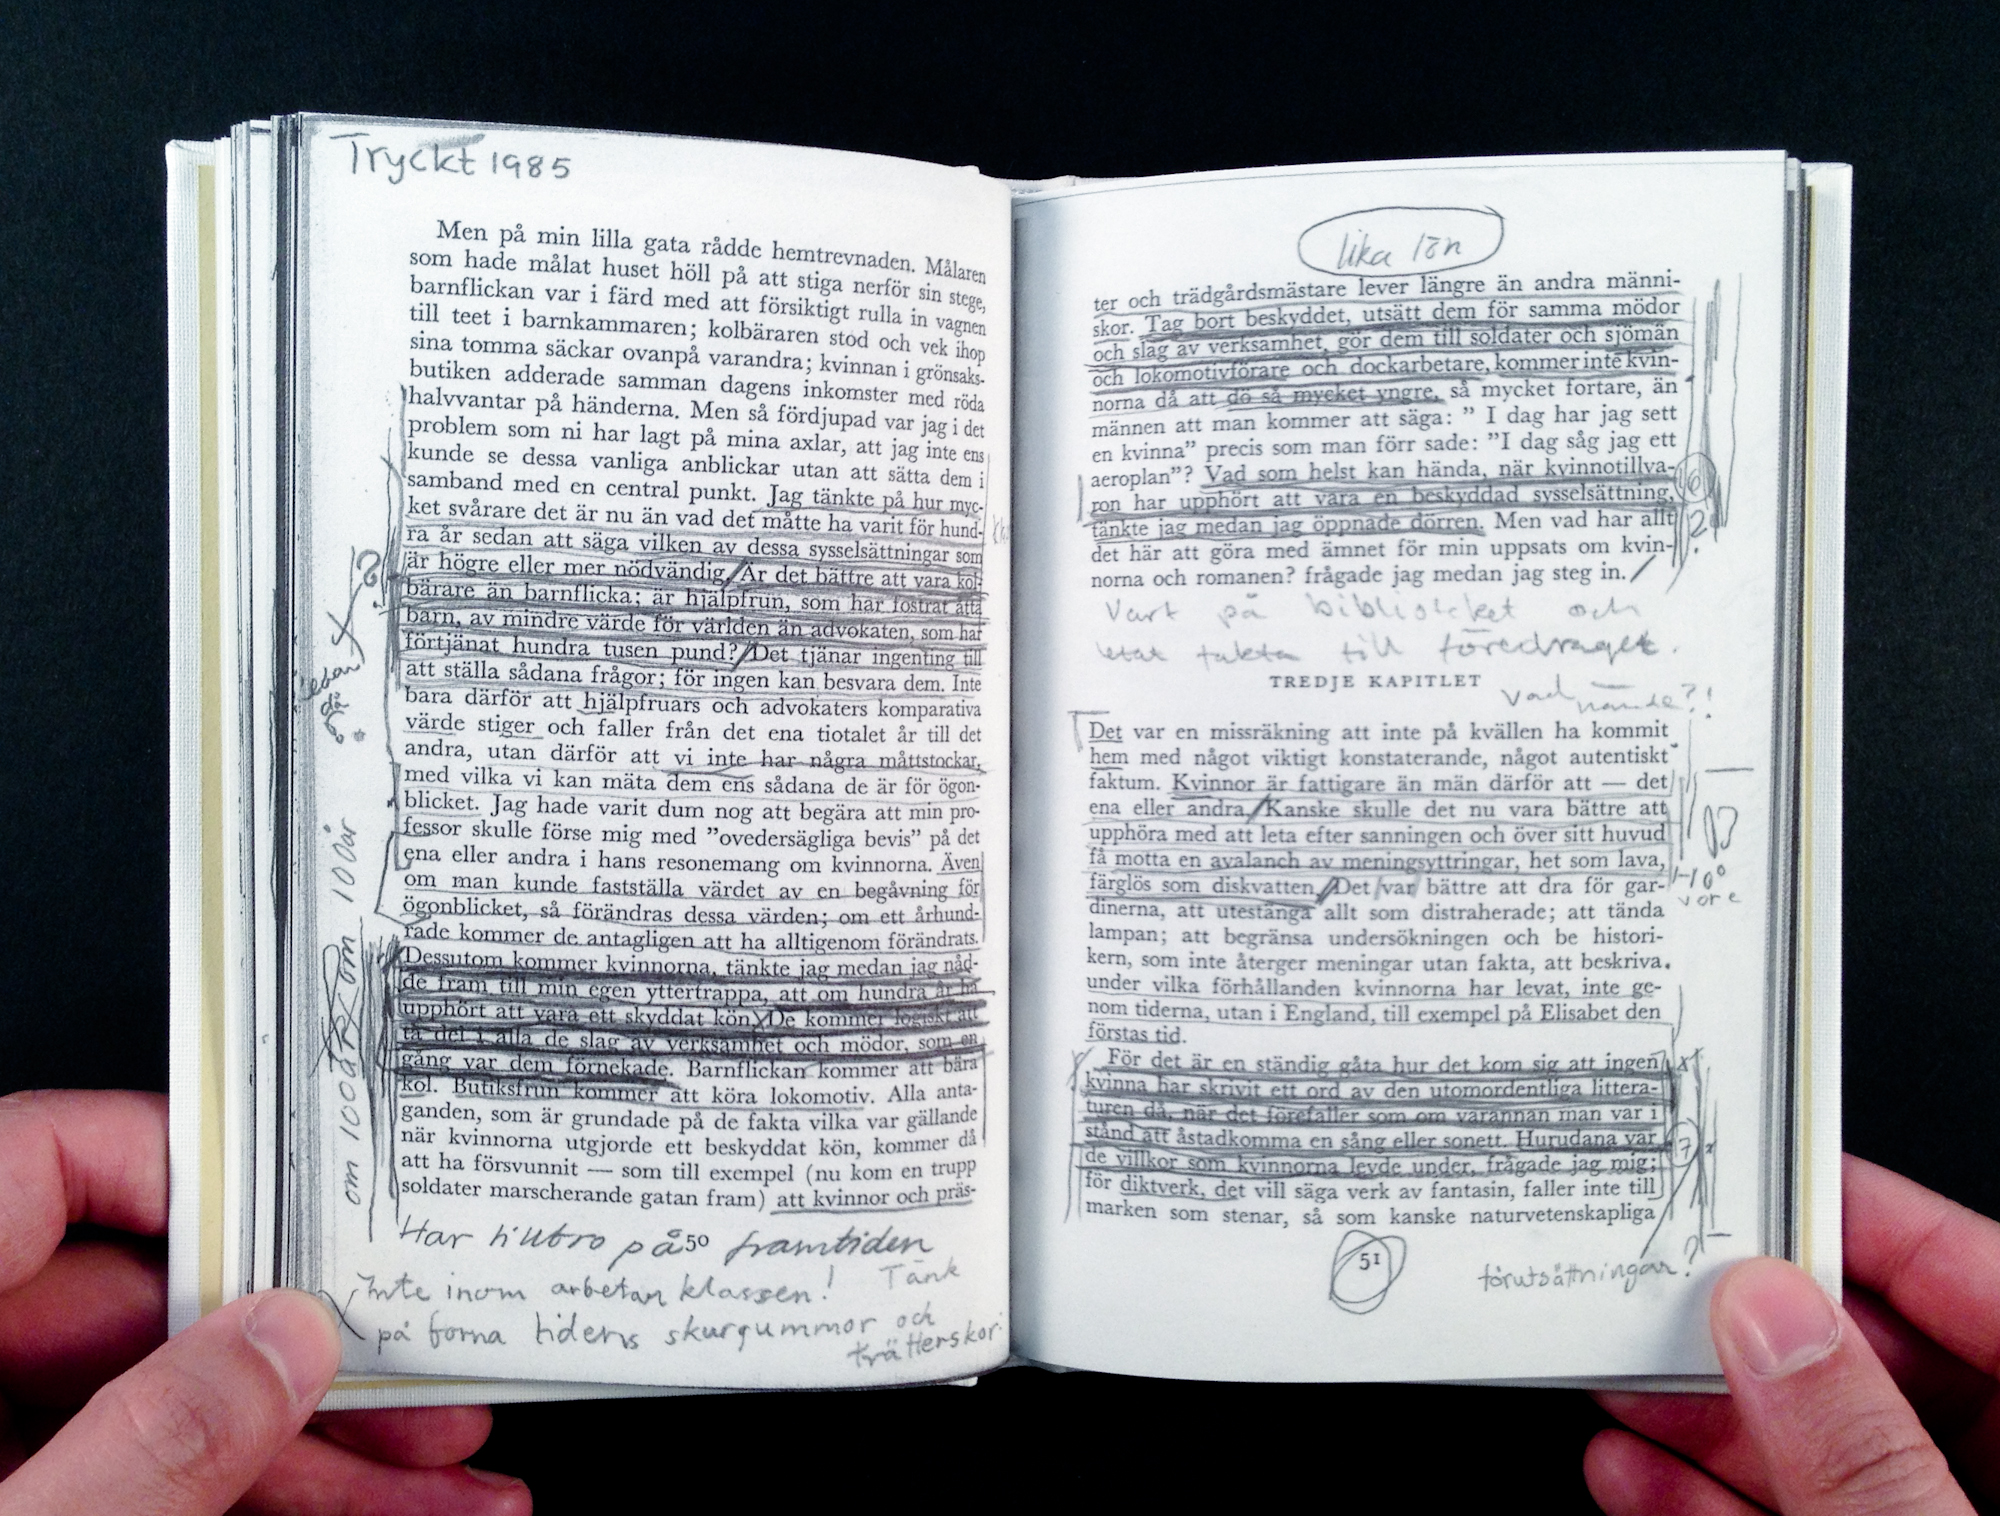 Tryckt 1985
Men på min lilla gata rådde hemtrevnaden. Målaren
som hade målat huset höll på att stiga nerför sin stege,
barnflickan var i färd med att försiktigt rulla in vagnen
till teet i barnkammaren; kolbäraren stod och vek ihop
sina tomma säckar ovanpå varandra; kvinnan i grönsaks-
butiken adderade samman dagens inkomster med röda
halvvantar på händerna. Men så fördjupad var jag i det
problem som ni har lagt på mina axlar, att jag inte ens
kunde se dessa vanliga anblickar utan att sätta dem i
samband med en central punkt. Jag tänkte på hur myc-
ket svårare det är nu än vad det måtte ha varit för hund-
ra år sedan att säga vilken av dessa sysselsättningar som
är högre eller mer nödvändig. Är det bättre att vara kol-
bärare än barnflicka; är hjälpfrun, som har fostrat åtta
barn, av mindre värde för världen än advokaten, som har
förtjänat hundra tusen pund? Det tjänar ingenting till
att ställa sådana frågor; för ingen kan besvara dem. Inte
bara därför att hjälpfruars och advokaters komparativa
värde stiger och faller från det ena tiotalet år till det
andra, utan därför att vi inte har några måttstockar,
med vilka vi kan mäta dem ens sådana de är för ögon-
blicket. Jag hade varit dum nog att begära att min pro-
fessor skulle förse mig med ”ovedersägliga bevis” på det
ena eller andra i hans resonemang om kvinnorna. Även
om man kunde fastställa värdet av en begåvning för
ögonblicket, så förändras dessa värden; om ett århund-
rade kommer de antagligen att ha alltigenom förändrats.
Dessutom kommer kvinnorna, tänkte jag medan jag nåd-
de fram till min egen yttertrappa, att om hundra år ha
upphört att vara ett skyddat kön. De kommer logiskt att
ta del i alla de slag av verksamhet och mödor, som en
gång var dem förnekade. Barnflickan kommer att bära
kol. Butiksfrun kommer att köra lokomotiv. Alla anta-
ganden, som är grundade på de fakta vilka var gällande
när kvinnorna utgjorde ett beskyddat kön, kommer då
att ha försvunnit — som till exempel (nu kom en trupp
soldater marscherande gatan fram) att kvinnor och präs-
?
100år
om 100år
Har tilltro på framtiden
50
Inte inom arbetarklassen! Tänk
på forna tiders skurgummor och
lika lön
ter och trädgårdsmästare lever längre än andra männi-
skor. Tag bort beskyddet, utsätt dem för samma mödor
och slag av verksamhet, gör dem till soldater och sjömän
och lokomotivförare och dockarbetare, kommer inte kvin-
norna då att dö så mycket yngre, så mycket fortare, än
männen att man kommer att säga: ” I dag har jag sett
en kvinna” precis som man förr sade: ”I dag såg jag ett
aeroplan”? Vad som helst kan hända, när kvinnotillva-
ron har upphört att vara en beskyddad sysselsättning,
tänkte jag medan jag öppnade dörren. Men vad har allt
det här att göra med ämnet för min uppsats om kvin-
norna och romanen? frågade jag medan jag steg in.
16
?
Vart på biblioteket och
letat fakta till föredraget.
TREDJE KAPITLET
Vad hände?!
Det var en missräkning att inte på kvällen ha kommit
hem med något viktigt konstaterande, något autentiskt
faktum. Kvinnor är fattigare än män därför att — det
ena eller andra. Kanske skulle det nu vara bättre att
upphöra med att leta efter sanningen och över sitt huvud
få motta en avalanch av meningsyttringar, het som lava,
färglös som diskvatten. Det var bättre att dra för gar-
dinerna, att utestänga allt som distraherade; att tända
lampan; att begränsa undersökningen och be histori-
kern, som inte återger meningar utan fakta, att beskriva
under vilka förhållanden kvinnorna har levat, inte ge-
nom tiderna, utan i England, till exempel på Elisabet den
förstas tid.
vore
För det är en ständig gåta hur det kom sig att ingen
kvinna har skrivit ett ord av den utomordentliga littera-
turen då, när det förefaller som om varannan man var i
stånd att åstadkomma en sång eller sonett. Hurudana var
de villkor som kvinnorna levde under, frågade jag mig;
för diktverk, det vill säga verk av fantasin, faller inte till
marken som stenar, så som kanske naturvetenskapliga
51
förutsättningar?